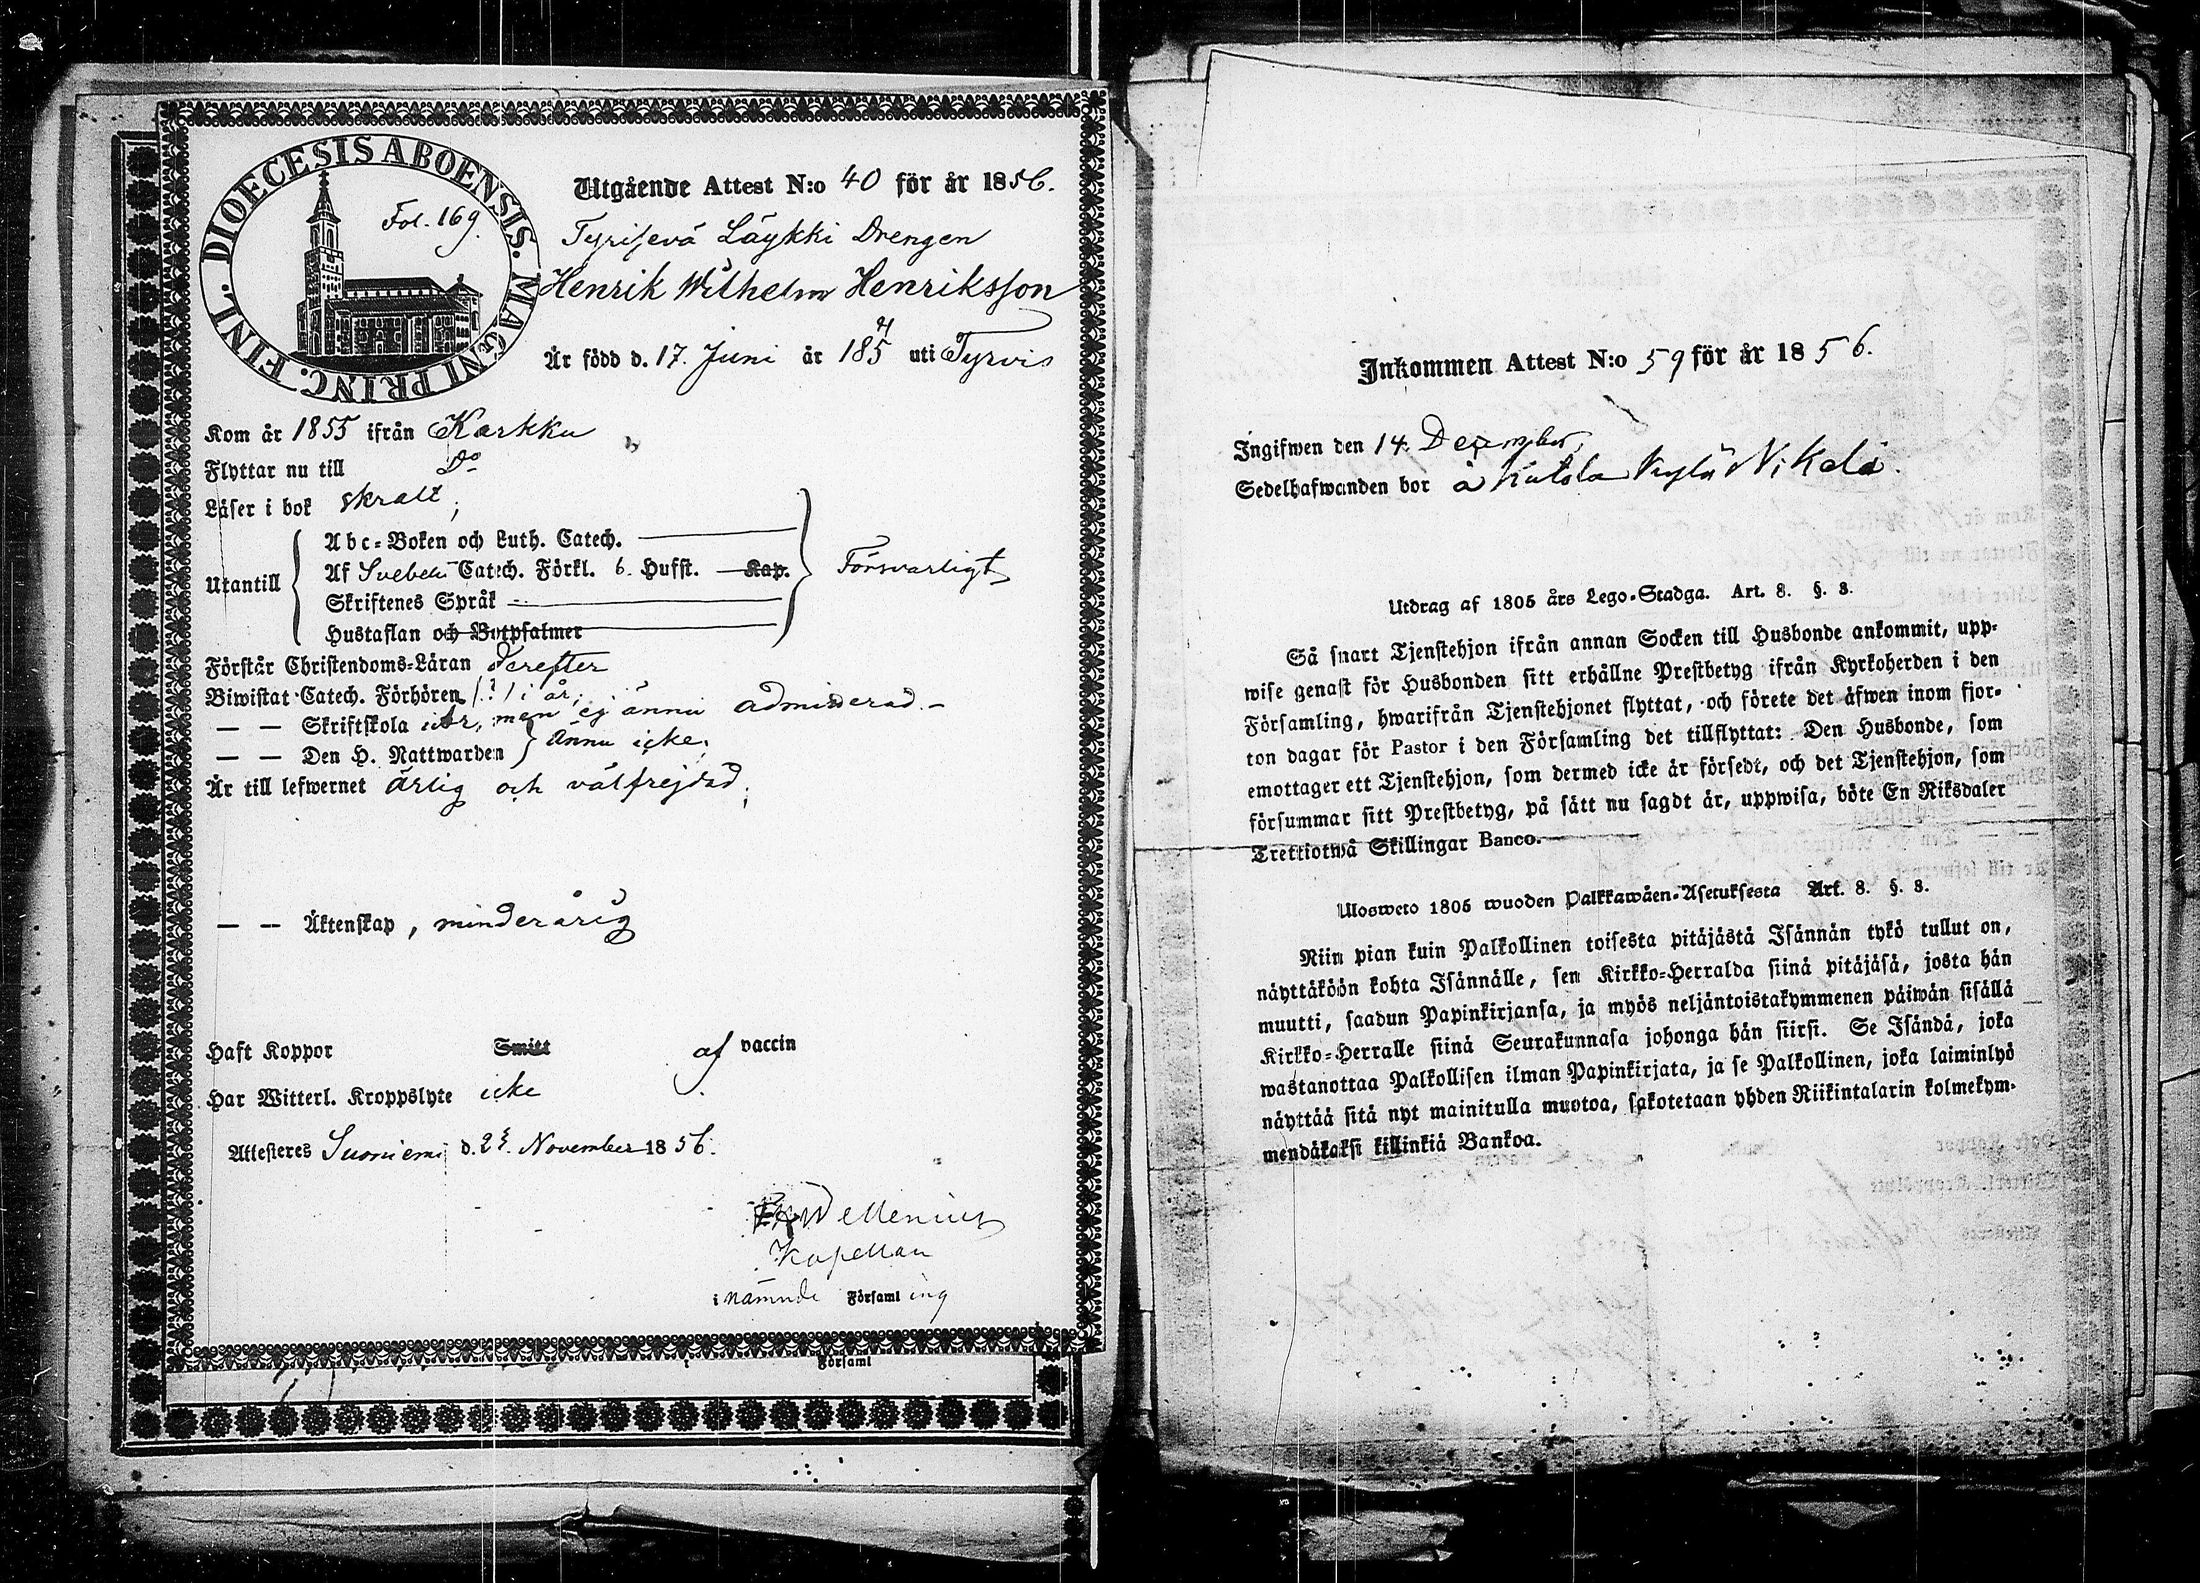 DIOECESIS ABOENSIS. MAGNI PRINC. FINL.
Fol. 169.
Utgående Attest N:o 40 för år 1856.
Tyrisevä Läykki Drengen
Henrik Wilhelm Henriksson
Är född d. 17. Juni år 185 uti Tyrvis
Kom år 1855 ifrån Karkku
Flyttar nu till Do
Läser i bok skralt,
Utantill
Abc-Boken och Luth. Catech.
Af Svebeli Catech. Förkl. 6. Hufst. Kap.
Skriftenes Språk
Hustaflan och Botpsalmer
Försvarligt
Förstår Christendoms-Läran derefter
Biwistat Catech. Förhören /:1:/ i år;
— — Skriftskola men ej ännu admitterad.
— — Den H. Nattwarden ännu icke;
Är till lefwernet ärlig och välfrejdad;
— — Äktenskap, minderårig
Haft Koppor Smitt af vaccin
Har Witterl. Kroppslyte icke
Attesteres Suoniemi d. November 1856.
Wellenius
Kapellan
i nämnde Församling
Församl
Inkommen Attest N:o 59 för år 1856.
Ingifwen den 14. December
Sedelhafwanden bor å Kutala Kylä Nikola.
Utdrag af 1805 års Lego-Stadga. Art. 8. §. 3.
Så snart Tjenstehjon ifrån annan Socken till Husbonde ankommit, upp-
wise genast för Husbonden sitt erhållne Prestbetyg ifrån Kyrkoherden i den
Församling, hwarifrån Tjenstehjonet flyttat, och förete det äfwen inom fjor-
ton dagar för Pastor i den Församling det tillflyttat: Den Husbonde, som
emottager ett Tjenstehjon, som dermed icke är försedt, och det Tjenstehjon, som
försummar sitt Prestbetyg, på sätt nu sagdt är, uppwisa, böte En Riksdaler
Trettiotwå Skillingar Banco.
Ulosweto 1805 wuoden Palkkawäen-Asetuksesta Art. 8. §. 3.
Niin pian kuin Palkollinen toisesta pitäjästä Isännän tykö tullut on,
näyttäköön kohta Isännälle, sen Kirkko-Herralda siinä pitäjäsä, josta hän
muutti, saadun Papinkirjansa, ja myös neljäntoistakymmenen päiwän sisällä
Kirkko-Herralle siinä Seurakunnasa johonga hän siirsi. Se Isändä, joka
wastanottaa Palkollisen ilman Papinkirjata, ja se Palkollinen, joka laiminlyö
näyttää sitä nyt mainitulla muotoa, sakotetaan yhden Riikintalarin kolmekym-
mendäkaksi killinkiä Bankoa.